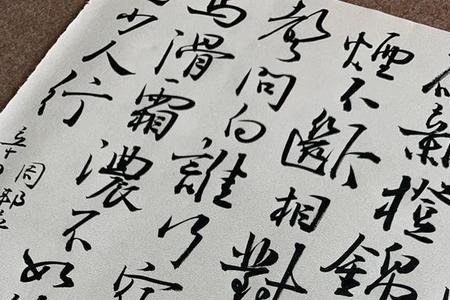 新橙錦
煙不斷相對
聲問向誰行
馬滑霜濃不如
少人行
周邦